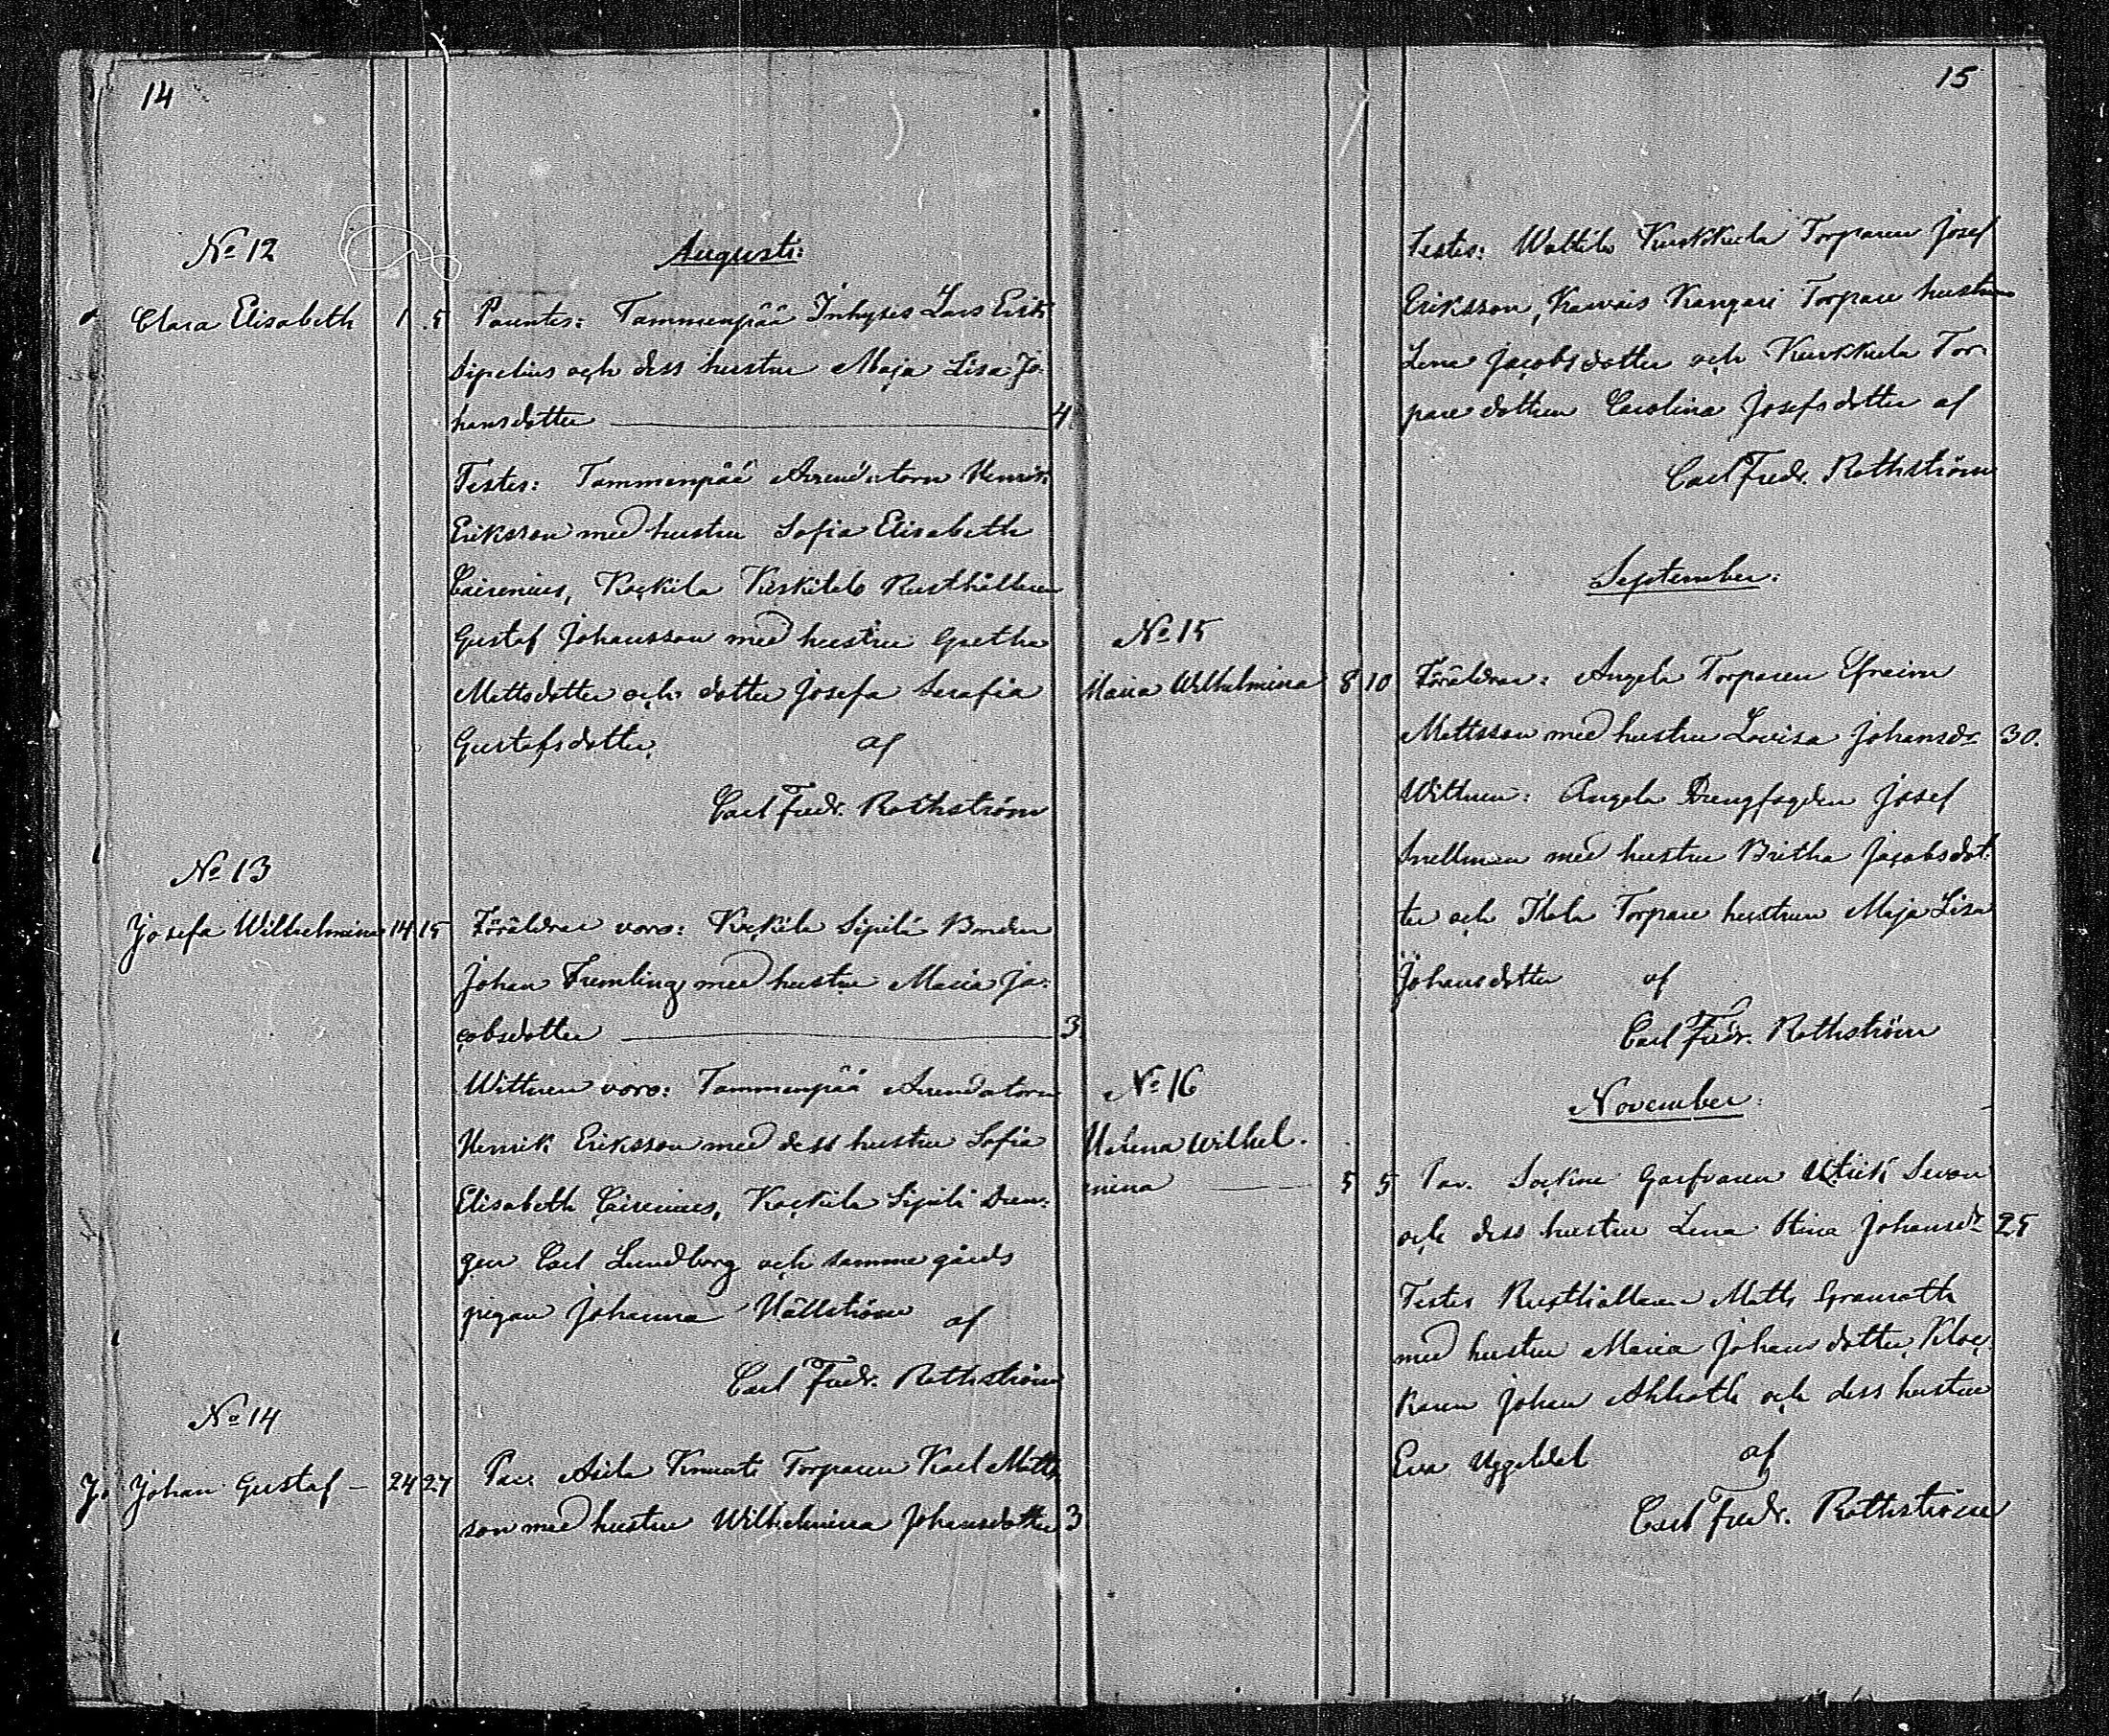 14
No 12
Augusti:
Clara Elisabeth 1 5 Parentes: Tammenpää Inhyses Lars Erik
Sipelius och dess hustru Maja Lisa Jo-
hansdotter 4.
Testes: Tammenpää Arrendatorn Henrik
Eriksson med hustru Sofia Elisabeth
Kockila Rusthållaren
Gustaf Johansson med hustru Gretha
Mattsdotter och dotter Josefa Serafia
Gustafsdotter. af
Carl Fredr. Rothström
No 13
Josefa Wilhelmina 14 15 Föräldrar voro: Kockila Sipilä Bonden
Johan Fremling med hustru Maria Ja-
cobsdotter 3.
Wittnen voro: Tammenpää Arrendatorn
Henrik Eriksson med dess hustru Sofia
Elisabeth Kockila Sipilä Dren-
gen Carl Lundborg och samma gårds
pigan Johanna Hällström af
Carl Fredr. Rothström
No 14
Jo Johan Gustaf – 24 27 Par. Torparen Karl Matts
son med hustru Wilhelmina Johansdotter 3
15
Testes: Kurkkula Torparen Josef
Eriksson, Kangari Torpare hustrun
Lena Jacobsdotter och Kurkkula Tor-
pare dottren Carolina Josefsdotter af
Carl Fredr. Rothström
September:
No 15
Maria Wilhelmina 8 10 Föräldrar: Angela Torparen Efraim
Mattsson med hustru Lovisa Johansdr 30.
Wittnen: Angela Drengfogden Josef
Snellman med hustru Britha Jacobsdot-
ter och Torpare hustrun Maja Lisa
Johansdotter af
Carl Fredr. Rothström
No 16
November:
Helena Wilhel-
mina 5 5 Par. Garfvaren
och dess hustru Lena Stina Johansdr 25
Testes Rusthållaren Matts Granroth
med hustru Maria Johansdotter, Kloc-
karen Johan Ahlroth och dess hustru
Eva Uggeldel af
Carl Fredr. Rothström